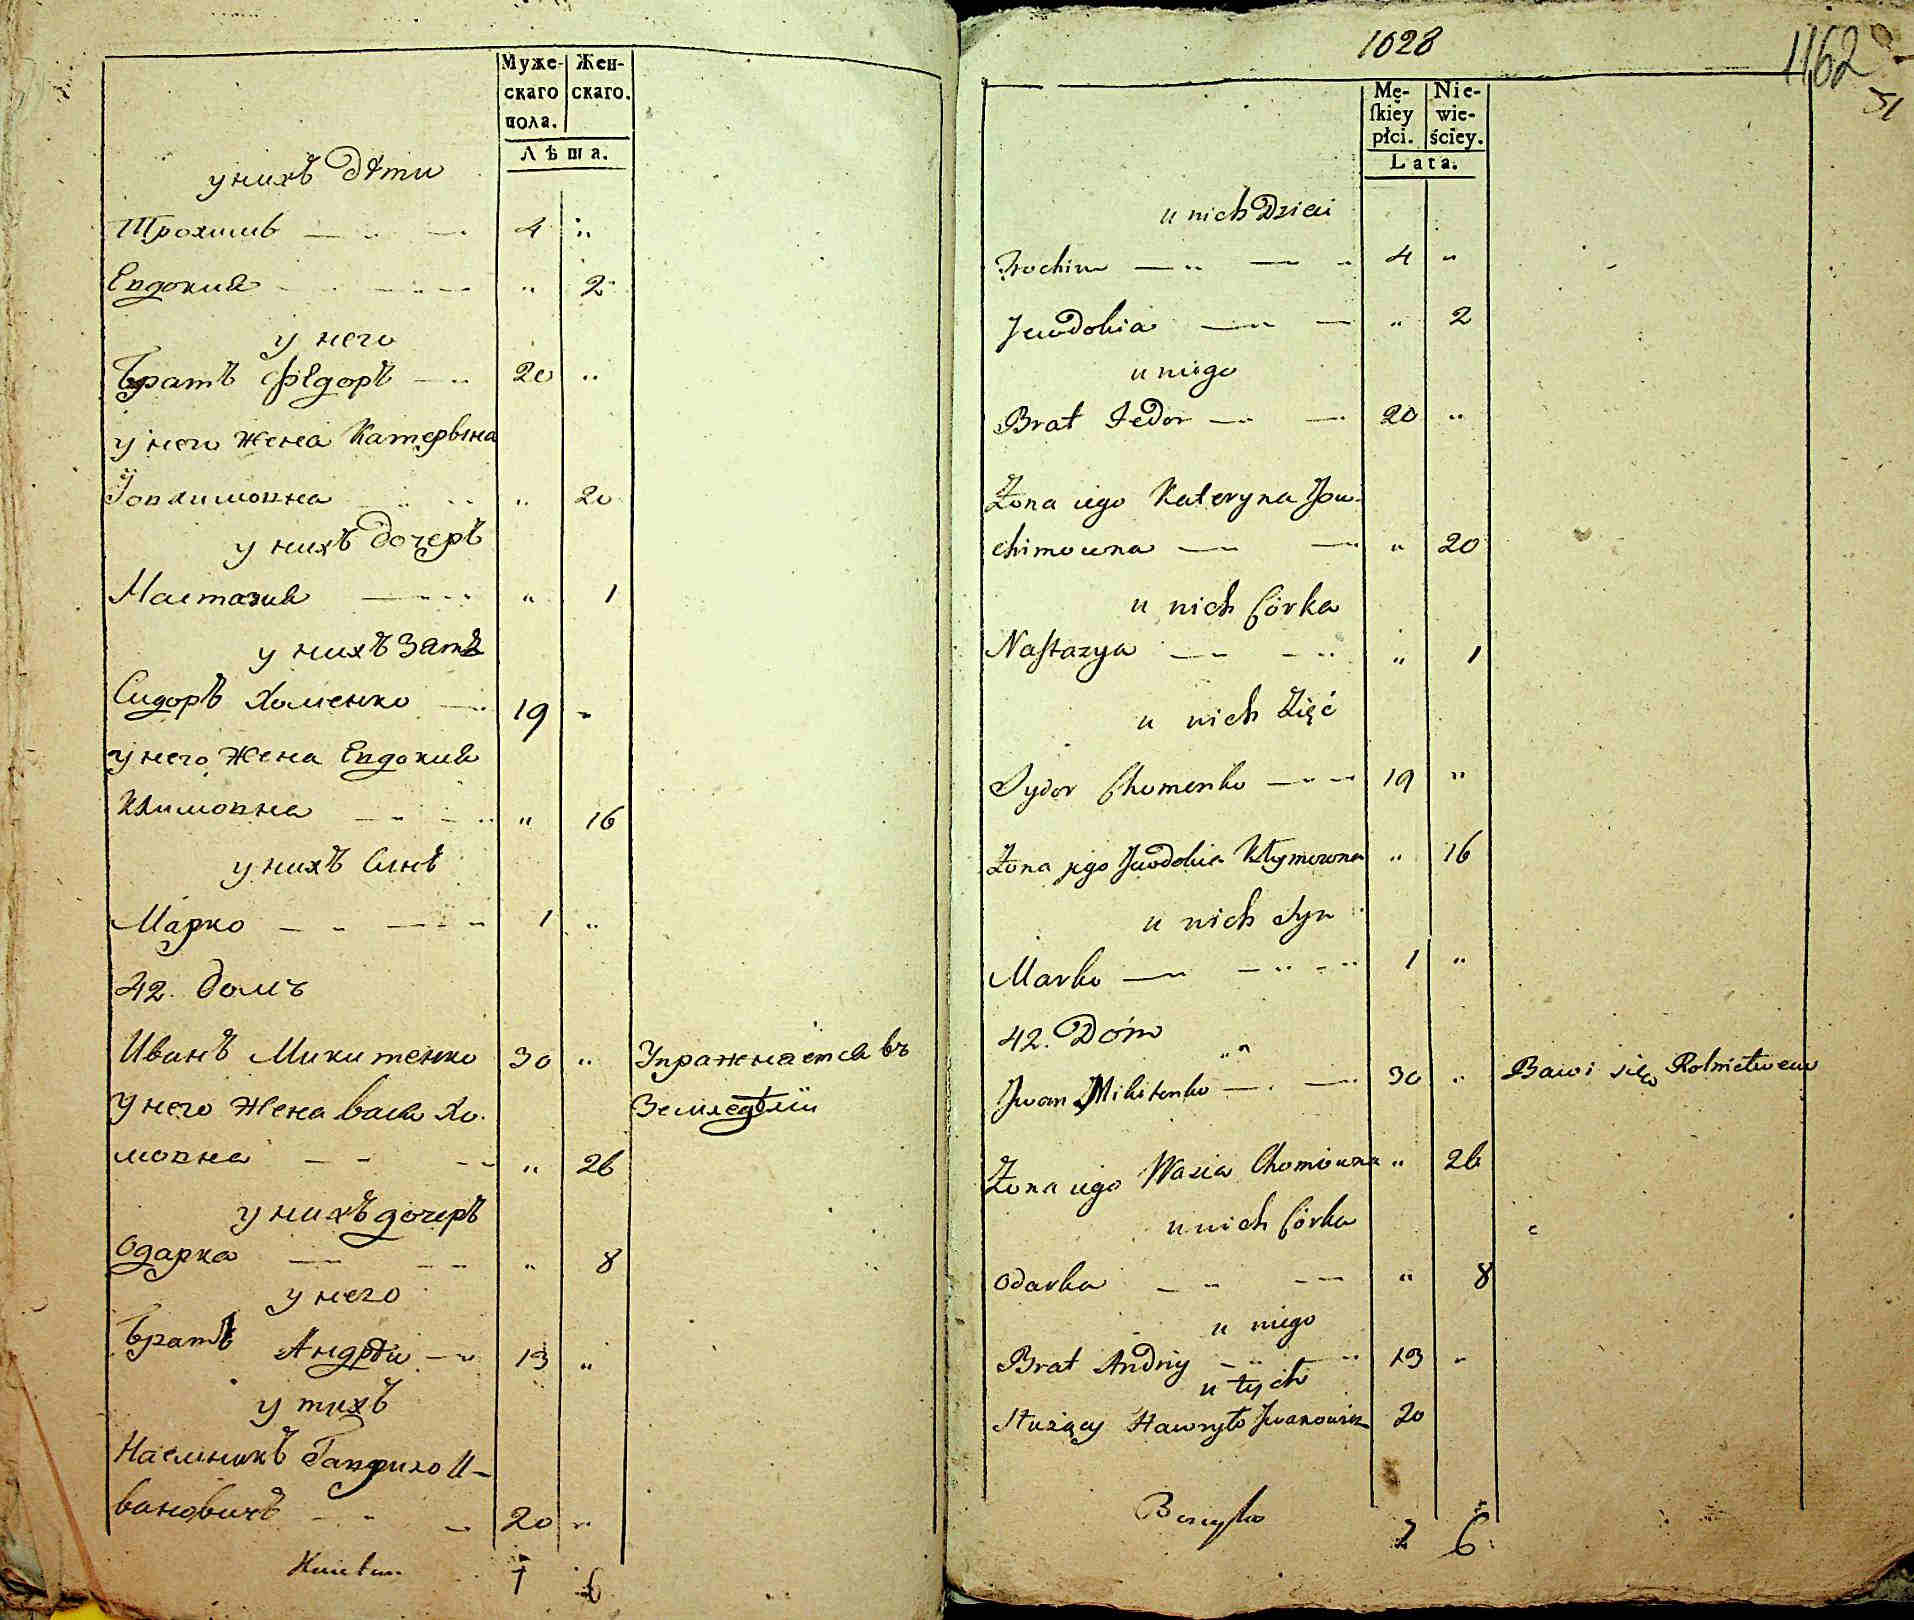 Муже-
скаго
пола.
Жен-
скаго.
Лѣта.
у нихъ дѣти
Трохимъ 4 "
Евдокия " 2
у него
братъ Федоръ 20 "
у него жена Катерына
" 20
у нихъ дочеръ
Настазия " 1
у нихъ зать
Сидоръ Хоменко 19 "
у него жена Евдокия
Климовна " 16
у нихъ синъ
Марко 1 "
42. домъ
Иванъ Микитенко 30 " Упражнается въ
у него жена Вася Хо-Земледѣлии
мовна " 26
у нихъ дочеръ
Одарка " 8
у него
братъ Андрѣй 13 "
у тихъ
Наемникъ Гаврило И-
вановичъ 20 "
7 6
1028
1162
51
Mę-
ſkiey
płci.
Nie-
wie-
ściey.
Lata.
u nich Dzieci
Trochim 4 "
Jewdokia " 2
u niego
Brat Fedor 20 "
Żona iego Kateryna Jow-
chimowna " 20
u nich Córka
Naſtazya " 1
u nich Zięć
Sydor Chomenko 19 "
Żona jego Jewdokia Kłymowna " 16
u nich Syn
Marko 1 "
42. Dóm
Jwan Mikitenko 30 " Bawi się Rolnictwem
Żona iego Wasia Chomowna " 26
u nich Córka
Odarka " 8
u niego
Brat Andriy 13 "
u tych
Służący Hawryło Jwanowicz 20
7 6